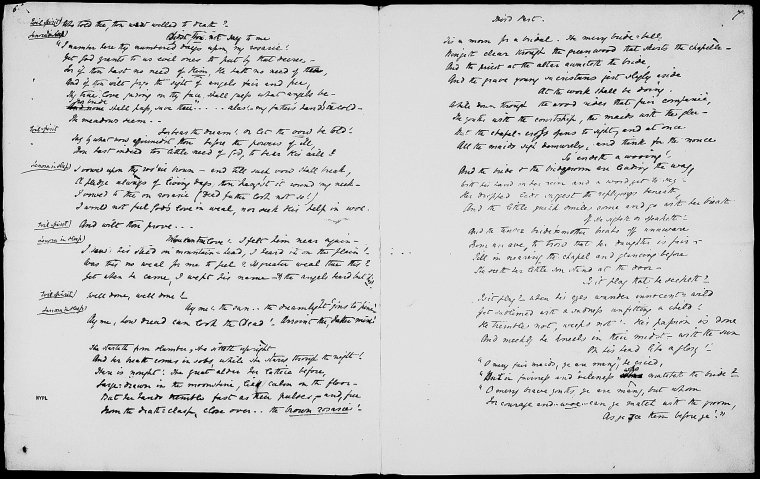 6
Evil spirit) Who told thee, thou wast willed to death?
Lenora in sleep) Didst thou not say to me
"I number here thy numbered days upon my rosarie!
Yet God grants to us evil ones to put by that decree,
For if thou hast no need of Him, He hath no need of thee,
And if thou wilt forgo the sight of angels fair and free,
Thy true Love gazing on thy face, shall guess what angels be
Thy bride shall pass, save thee" .... alas! my father's hand's a cold
The meadows seem ..
Evil spirit Forbear the dream! or let the word be told!
Say by what vow assuredst thou before the powers of ill,
Thou hast indeed too little need of God, to bear His will!
Lenora in sleep) I vowed upon thy rosarie brown – and till such vow shall break,
A pledge always of living days thou hangst it round my neck –
I vowed to thee on rosarie (Dead father look not so!)
I would not feel God's love in weal, nor seek His help in woe.
Evil spirit) And wilt thou prove ...
Lenora in sleep) I felt him near again –
I saw his steed on mountain-head, I heard it on the plain!
Was this no weal for me to feel? Is greater weal than this?
Yet when he came, I wept his name – & the angels heard but his
Evil spirit) Well done, well done!
Lenora in sleep) Ay me! the sun .. the dreamlight 'gins to pine!
Ay me, how dread can look the Dead! Aroint thee, father mine!
She starteth from slumber, she sitteth upright
And her breath comes in sobs while she stares through the night!
There is nought! The great willow her lattice before,
Large drawn in the moonshine, lieth calm on the floor –
But her hands tremble fast as their pulses, and, free
From the death clasp, close over .. the brown rosarie!
NYPL
7
Third Part.
Tis a morn for a bridal. The merry bride-bell
Rings clear through the greenwood that skirts the chapelle –
And the priest at the altar awaiteth the bride,
And the grave young sacristans jest slyly aside
At the work shall be doing.
While down through the wood rides that fair companie,
The youths with the courtship, the maids with the glee –
Till the chapel-cross opens to sight, and at once
All the maids sigh demurely, and think for the nonce
So endeth a wooing!
And the bride & the bridegroom are leading the way,
With his hand on her rein and a word yet to say:
Her dropped lids suggest the replyings beneath,
And the little quick smiles come and go with her breath
If she sigheth or speaketh –
And the bridemother breaks off unaware
From an ave, to think that her daughter is fair –
Till in nearing the chapel and glancing before
She seeth her little son stand at the door –
Is it play that he seeketh?
Is it play? when his eyes wander innocent-wild
Yet sublimed with a sadness unfitting a child!
He trembles not, weeps not! – His passion is done
And meekly he kneels in their midst – with the sun
On his head like a glory!
"O merry fair maids, ye are many," he cried,
"But in fairness and vileness who matcheth the bride?
"O merry brave youths, ye are many, but whom
For courage and woe can ye match with the groom,
As ye see them before ye?"